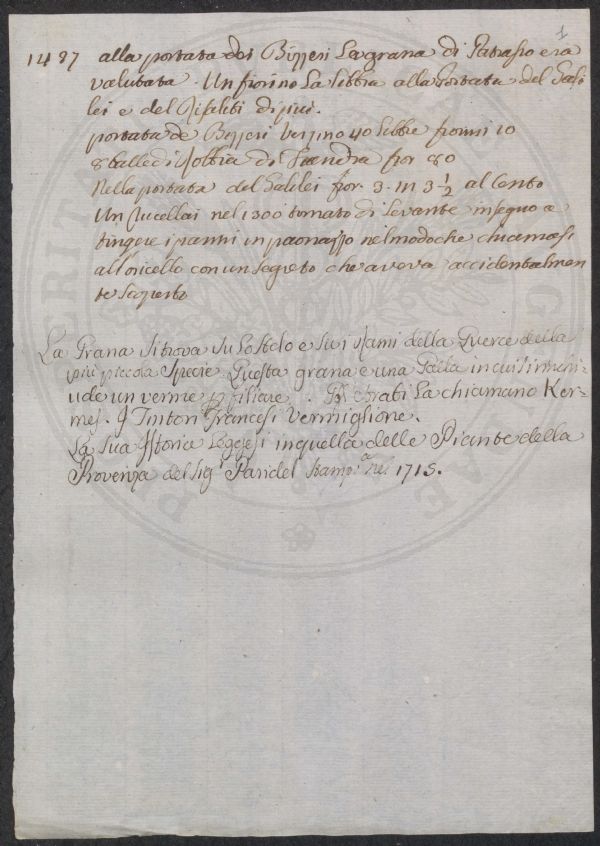 1
1427 alla portata dei Bizzeri La grana di Patrasso era
valutata Un fiorino La libbra alla Portata del Gali
lei e del Risaliti di piu.
portata de Bizzeri Verzino 40 libbre fiorini 10
8 balle di Robbia di Fiandra fior 80
Nella portata del Galilei fior. 3. in 3 1/2 al Cento
Un Rucellai nel 1300 tornato di Levante insegno a
tingere i panni in paonazzo nel modo che chiamasi
all'oricello con un segreto che aveva accidentalmen
te scoperto
La Grana si trova su Lo stelo e su i Rami della Querce della
più piccola Specie Questa grana è una Galla in cui si rinchi-
ude un verme p figliare. Gl Arabi La chiamano Ker-
mes. I Tintori Francesi Vermiglione.
La sua Istoria Leggesi in quella delle Piante della
Provenza del Sigr Garidel Stampa. nel 1715.